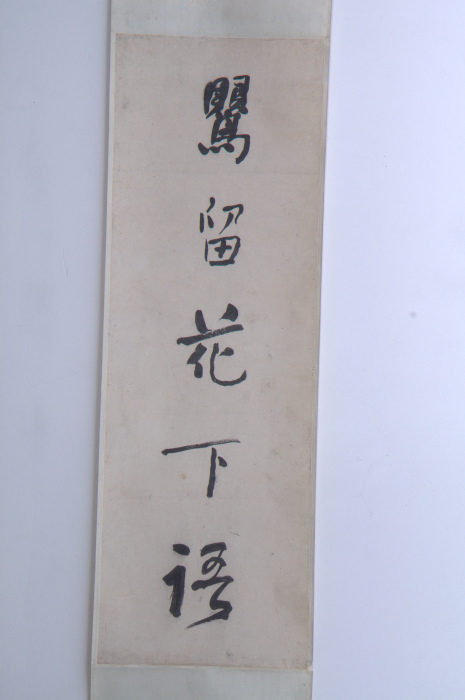 鸎留花下語